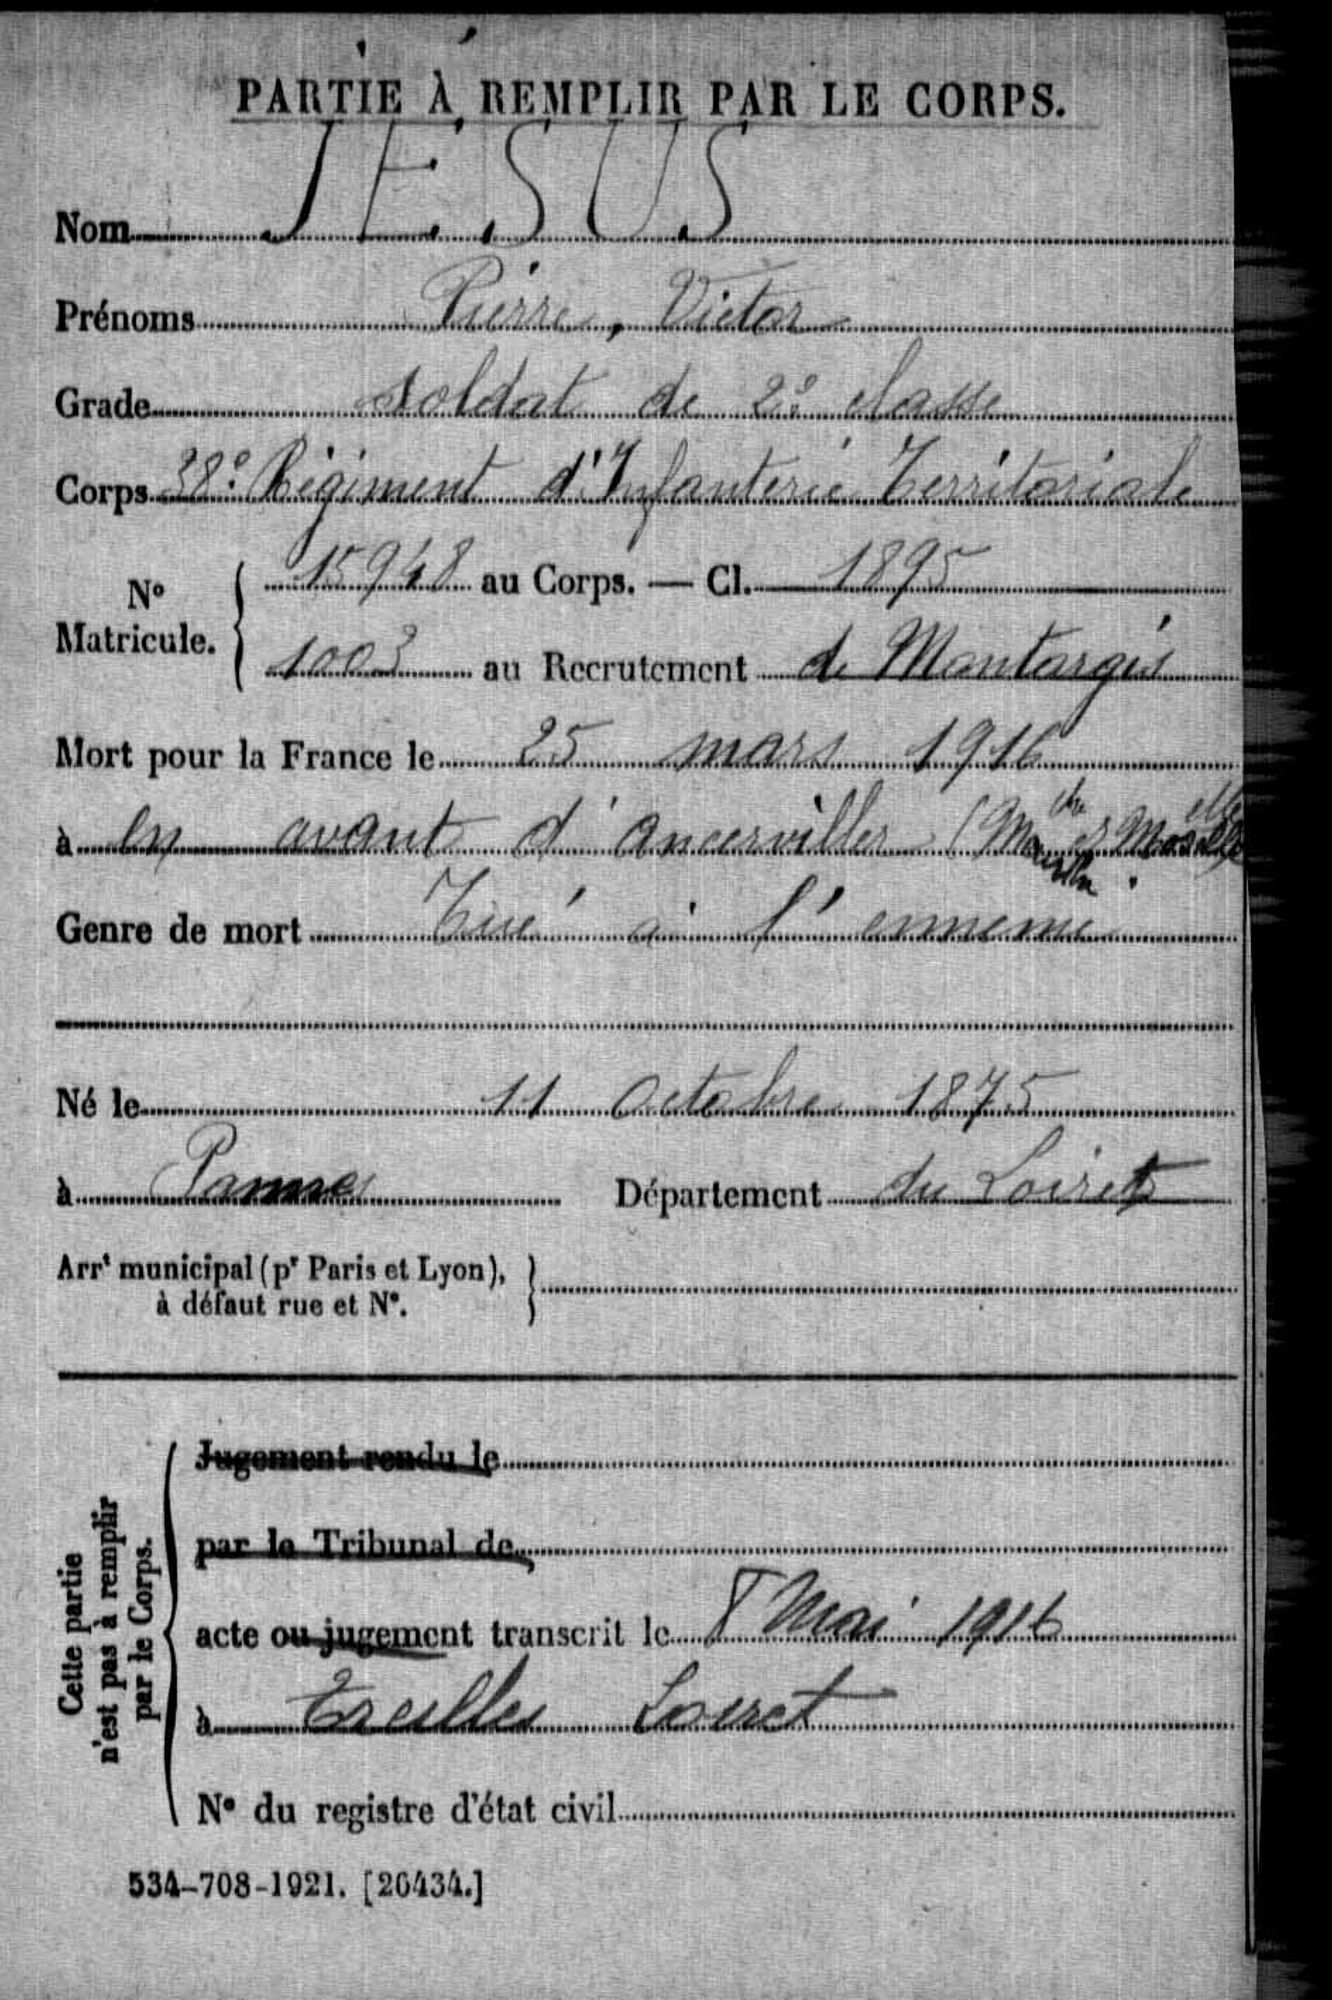 PARTIE À REMPLIR PAR LE CORPS.
Nom JÉSUS
Prénoms Pierre, Victor
Grade Soldat de 2e classe
Corps 38e Régiment d'Infanterie Territoriale
No Matricule. 15948 au Corps. — Cl. 1895
1003 au Recrutement de Montargis
Mort pour la France le 25 mars 1916
à en avant d'Ancerviller (Mthe et Moselle)
Genre de mort Tué à l'ennemi
Né le 11 Octobre 1875
à Pannes Département du Loiret
Arrt municipal (pr Paris et Lyon),
à défaut rue et No.
Cette partie
n'est pas à remplir
par le Corps.
Jugement rendu le
par le Tribunal de
acte ou jugement transcrit le 8 Mai 1916
à Treilles Loiret
No du registre d'état civil
534-708-1921. [26434.]